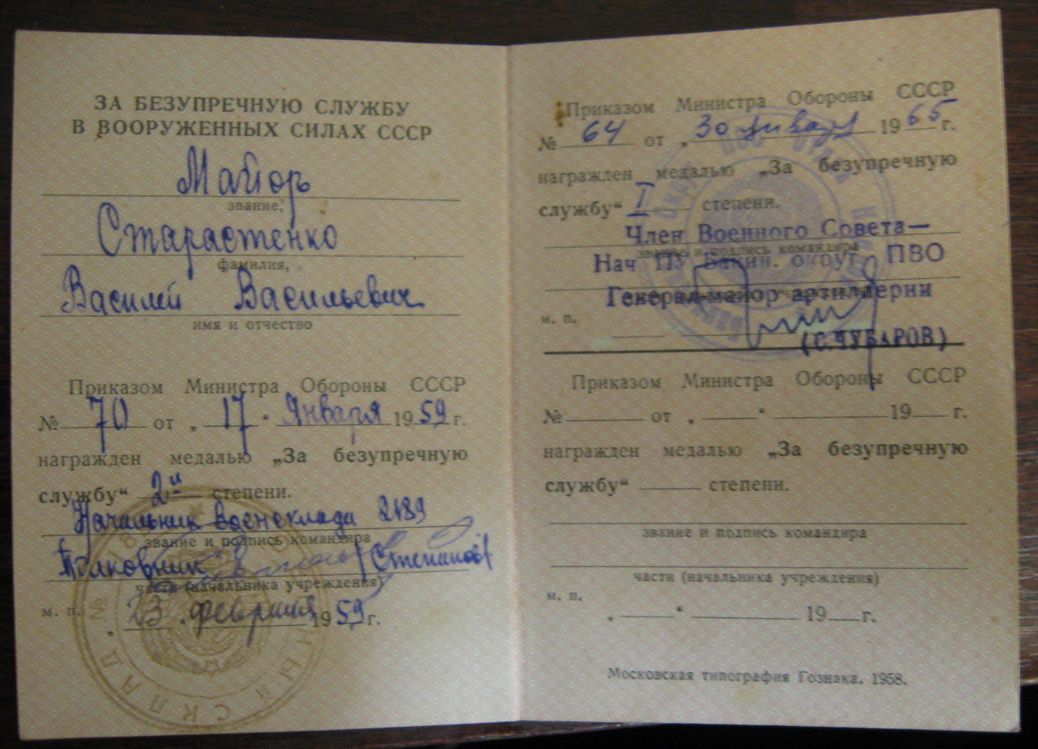 ЗА БЕЗУПРЕЧНУЮ СЛУЖБУ
В ВООРУЖЕННЫХ СИЛАХ СССР
Майор
звание,
Старастенко
фамилия,
Василий Васильевич
имя и отчество
Приказом Министра Обороны СССР
№ 70 от „17“ Января 1959 г.
награжден медалью „За безупречную
службу“ 2й степени.
Начальник военсклада 2189
звание и подпись командира
Полковник (Степанов)
части (начальника учреждения)
м. п. „23“ февраля 1959 г.
ВОЕННЫЙ СКЛАД №
Приказом Министра Обороны СССР
№ 64 от „30 января 1965 г.
награжден медалью „За безупречную
службу“ I степени.
Член Военного Совета—
звание и подпись командира
Нач ПУ Бакин. округа ПВО
Генерал-майор артиллерии
м. п.
(С.ЧУБАРОВ)
Приказом Министра Обороны СССР
№ от „ “ 19 г.
награжден медалью „За безупречную
службу“ степени.
звание и подпись командира
части (начальника учреждения)
м. п.
„ “ 19 г.
Московская типография Гознака. 1958.